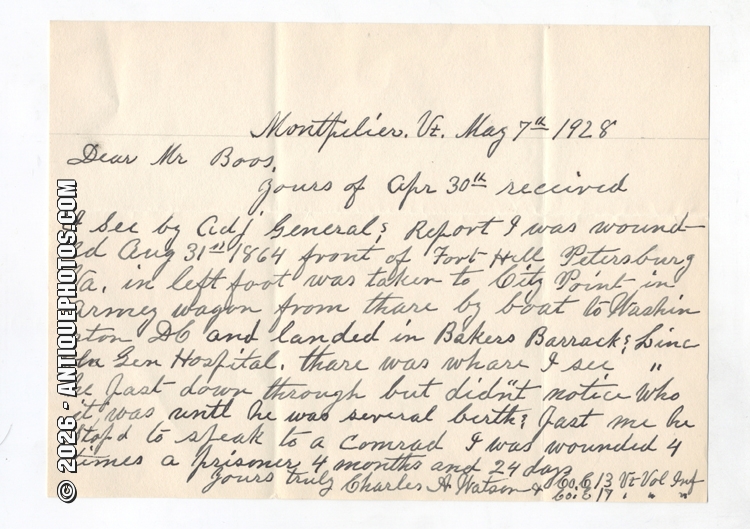 Montpilier. Vt. May 7th 1928
Dear Mr Boos,
Yours of Apr 30th received
I See by Adj Generals Report I was wound-
ed Aug 31st 1864 front of Fort Hill Petersburg
Va, in left foot was taken to City Point in
armey wagon from thare by boat to Washin
gton DC and landed in Bakers Barracks, Linc
oln Gen Hospital. thare was whare I see "
he past down through but didn't notice who
it was until he was several births past me he
stop'd to speak to a Comrad I was wounded 4
times a prisoner 4 months and 24 days
Yours truly Charles A. Watson Co. C 13 Vt Vol Inf
Co. E 17 " " "
© 2026 - ANTIQUEPHOTOS.COM